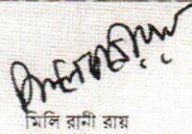 মিলি রানী রায়